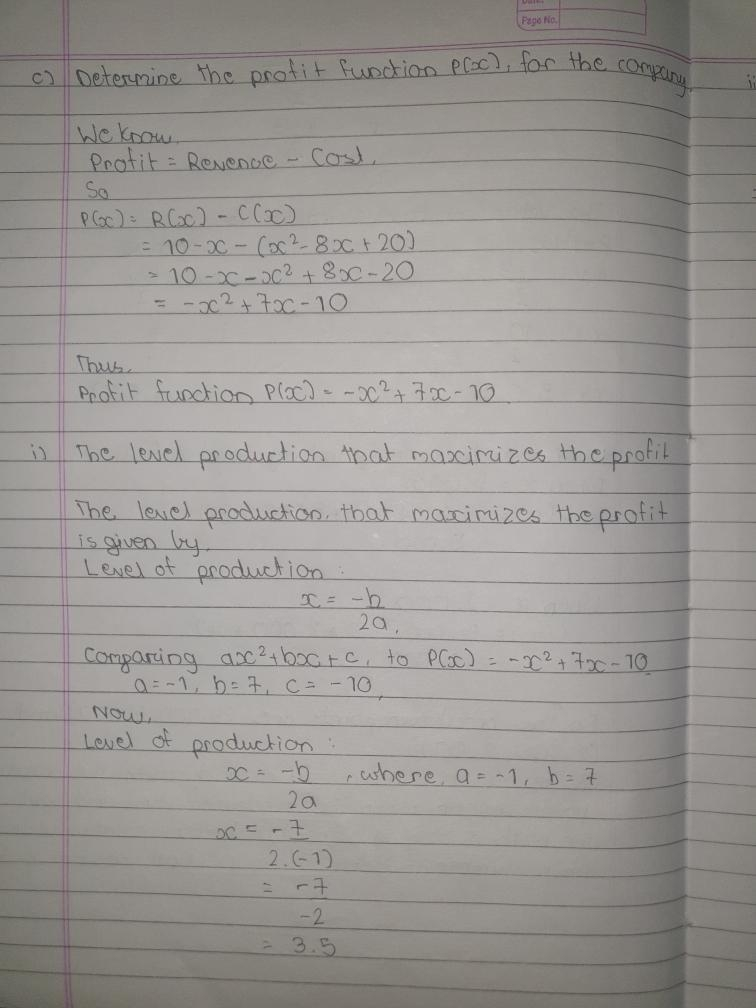 Date:
Page No.
c) Determine the profit function P(x), for the company.
We know,
Profit = Revenue - Cost,
So
P(x) = R(x) - C(x)
= 10 - x - (x² - 8x + 20)
= 10 - x - x² + 8x - 20
= -x² + 7x - 10
Thus,
Profit function P(x) = -x² + 7x - 10
i) The level production that maximizes the profit
The level production, that maximizes the profit
is given by,
Level of production :
x = -b
2a,
Comparing ax² + bx + c, to P(x) = -x² + 7x - 10
a = -1, b = 7, c = -10,
Now,
Level of production :
x = -b , where, a = -1, b = 7
2a
x = -7
2.(-1)
= -7
-2
= 3.5